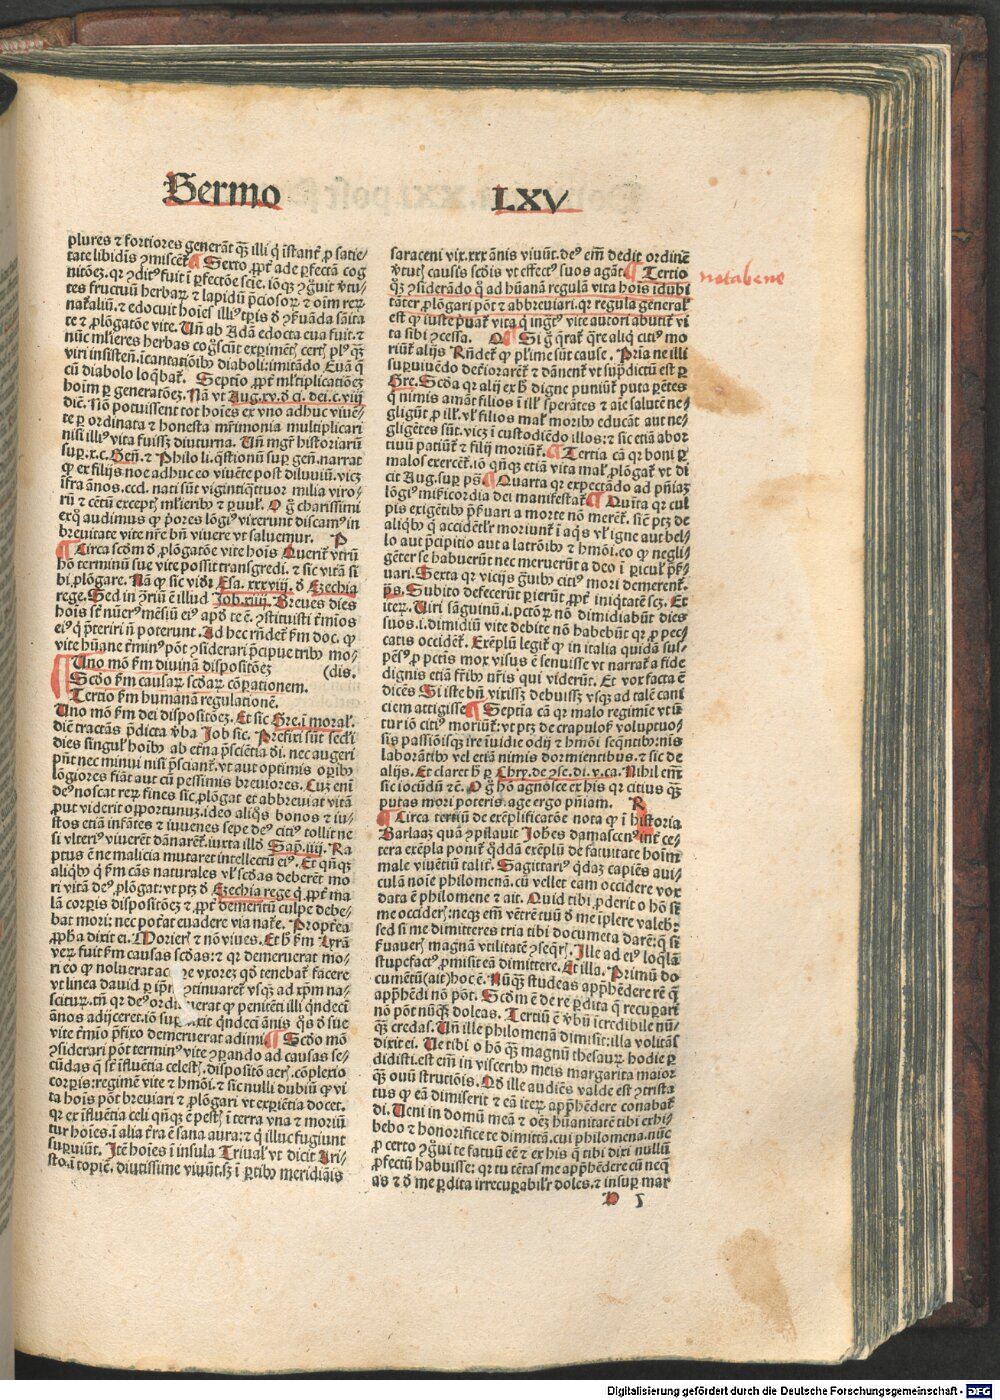 Sermo LXV
plures ⁊ fortiores generāt qȝ̄ illi q̇ īstant̄ ꝓ satie-
tate libidīs ꝯmiscēt̄ ¶ Sexto ꝓpt̄ ade ꝑfectā cog
nitōeȝ. qꝛ ꝯdit᷒ fuit ī ꝑfectōe sciē. iōqȝ ꝯgͦuit v̄tu-
tes fructuū herbaꝝ ⁊ lapidū p̄ciosoꝝ ⁊ oīm reꝝ
nat̄aliū. ⁊ edocuit hoīes illi᷒ tꝑis ꝺ ꝯẜuāda saīta
te ⁊ ꝓlōgatōe vite. Uñ ab Adā edocta eua fuit. ⁊
nūc ml̄ieres herbas cog̊scūt exꝑimēt̄ cert̄ pl᷒ qȝ̄
viri insistēt̄. īcantatiōibꝰ diaboli: imitādo Euā q̄
cū diabolo loq̄bat̄. Septīo ꝓpt̄ ml̄tiplicatiōeȝ
hoīm ꝑ generatōeȝ. Nā vt Aug. xv. ꝺ ci. dei. c. viij
dīc̄. Nō potuissent tot hoīes ex vno adhuc viuē-
te ꝑ ordinata ⁊ honesta mr̄imonia multiplicari
nisi illi᷒ vita fuissȝ diuturna. Uñ mgr̄ historiarū
suꝑ. x. c. Geñ. ⁊ Philo li. q̄stionū suꝑ geñ. narrat
ꝙ ex filijs noe adhuc eo viuēte post diluuiū. vicȝ
īfra ānos. ccclͦ. nati sūt vigintiq̇ttuor milia viro-
rū ⁊ cētū except̄ ml̄ieribꝰ ⁊ ꝑuul̄. O ḡ charissimi
exq̊ audimus ꝙ p̄ores lōgi᷒ vixerunt discam᷒ in
breuitate vite nr̄e bn̄ viuere vt saluemur. P
¶ Circa scd̄m ꝺ ꝓlōgatōe vite hoīs Querit̄ vtrū
hō terminū sue vite possit transgredi. ⁊ sic vitā si
bi ꝓlōgare. Nā ꝙ sic vid̄r Esa. xxxviij. ꝺ Ezechia
rege. Sed in ↄ̄riū ē illud Job. xiiij. Breues dies
hoīs st̄ nūer᷒ mēsiū ei᷒ apd̄ te ē. ꝯstituisti t̄mīos
ei᷒ q̇ p̄teriri ñ poterunt. Ad hec rn̄det̄ ẜm doc. ꝙ
vite hūane t̄min᷒ pōt ꝯsiderari p̄cipue tribꝰ mo-
Uno mō ẜm diuinā dispositōeȝ (dis.
Scd̄o ẜm causaꝝ scd̄aꝝ cōꝑationem.
Tertio ẜm humanā regulationē.
Uno mō ẜm dei dispositōeȝ. Et sic Gre. ī moral̄.
dīc̄ tractās p̄dicta v̄ba Job sic. Prefixi sūt sc̄d̄i
dies singul̄ hoībꝰ ab et̄na p̄sciētia dī. nec augeri
pn̄t nec minui nisi p̄sciant̄. vt aut optimis oꝑibꝰ
lōgiores fiāt aut cū pessimis breuiores. Cuȝ enī
de᷒ noscat reꝝ fines sic ꝓlōgat et abbreuiat vitā
ꝓut viderit opportunuȝ. ideo aliq̊s bonos ⁊ iu-
stos etiā infātes ⁊ iuuenes sepe de᷒ citi᷒ tollit ne
si vlteri᷒ viuerēt dānarēt̄. iuxta illd̄ Sap̄. iiij. Ra
ptus ē ne malicia mutaret intellectū ei᷒. Et qn̄qȝ
aliq̇bꝰ q̇ ẜm cās naturales vl̄ scd̄as deberēt mo
ri vitā de᷒ ꝓlōgat: vt ptȝ ꝺ Ezechia rege q̇ ꝓpt̄ ma
lā corꝑis dispositōeȝ ⁊ ꝓpt̄ demeritū culpe debe-
bat mori: nec pot̄at euadere via nat̄e. Propt̄ea
ꝓph̄a dixit ei. Morier̄ ⁊ nō viues. Et h̄ ẜm Lyrā
veꝝ fuit ẜm causas scd̄as: ⁊ qꝛ demeruerat mo-
ri eo ꝙ noluerat ac re vxoreȝ qd̄ tenebat̄ facere
vt linea dauid ꝑ ip̄m tinuaret̄ vsqȝ ad xp̄m na-
sciturꝝ. tn̄ qꝛ de᷒ ordi uerat ꝙ penitēti illi q̇ndecī
ānos adijceret. iō suꝑ xit q̇ndecī ānis q̊s ꝺ sue
vite t̄mīo p̄fixo demeruerat adimi. ¶ Scd̄o mō
ꝯsiderari pōt termin᷒ vite ꝯꝑando ad causas se-
cūdas q̄ st̄ īfluētia celest̄. dispositō aer̄. cōplexio
corꝑis: regimē vite ⁊ hmōi. ⁊ sic nulli dubiū ꝙ vi
ta hoīs pōt breuiari ⁊ ꝓlōgari vt exꝑiētia docet.
qꝛ ex īfluētia celi qn̄qȝ ē pest̄ ī terra vna ⁊ moriū
tur hoīes. ī alia t̄ra ē sana aura: ⁊ q̇ illuc fugiunt
suꝑuiūt. Itē hoīes ī insula Triual̄ vt dicit Ari-
sto. ī topic̄. diutissime viuūt. sȝ ī ꝑtibꝰ meridiāis
saraceni vix. xxx ānis viuūt. de᷒ em̄ dedit ordinē
v̄tut̄ causis scd̄is vt effect᷒ suos agāt ¶ Tertio
q̄ȝ ꝯsiderādo q̄ ad hūanā regulā vita hoīs īdubi
tāter ꝓlōgari pōt ⁊ abbreuiari. qꝛ regula general̄
est ꝙ iuste p̄uat̄ vita q̇ ingͣt᷒ vite autori abutit̄ vi
ta sibi ꝯcessa. Q ¶ Si g̊ q̄rat̄ qr̄e aliq̇ citi᷒ mo
riūt̄ alijs Rn̄det̄ ꝙ pl̄ime sūt cause. Pria ne illi
suꝑuiuēdo deteriorēt̄ ⁊ dānent̄ vt supͣdictū est ꝑ
Gre. Scd̄a qꝛ alij ex h̄ digne puniūt̄ puta ꝑētes
q̇ nimis amāt filios ī ill̄ sperātes ⁊ aīe salutē ne-
gligūt ꝓ ill̄. vl̄ filios mal̄ moribꝰ educāt aut ne-
gligētes sūt. vicȝ ī custodiēdo illos: ⁊ sic etiā abor
tiuū patiūt̄ ⁊ filij moriūt̄. ¶ Tertia cā qꝛ boni ꝑ
malos exercēt̄. iō qn̄qȝ etiā vita mal̄ ꝓlōgat̄ vt di
cit Aug. suꝑ ps̄. ¶ Quarta qꝛ expectādo ad pn̄iaȝ
lōgi᷒ mīẜicordia dei manifestat̄ ¶ Quīta qꝛ cul
pis exigētibꝰ p̄ẜuari a morte nō merēt̄. sic̄ ptȝ de
aliq̇bꝰ q̇ accidētl̄r moriunt̄ ī aq̄s vl̄ igne aut bel-
lo aut p̄cipitio aut a latrōibꝰ ⁊ hmōi. eo ꝙ negli-
gēter se habuerūt nec meruerūt a deo ī ꝑicul̄ p̄ẜ-
uari. Sexta qꝛ vicijs g̊uibꝰ citi᷒ mori demerent̄.
p̄s. Subito defecerūt ꝑierūt ꝓpt̄ iniq̇tatē scȝ. Et
iteꝝ. Uiri sāguinū. i. pctōꝝ nō dimidiabūt dies
suos. i. dimidiū vite debite nō habebūt qꝛ ꝓ pec-
catis occidēt̄. Exēplū legit̄ ꝙ in italia quidā sus-
pēs᷒ ꝓ pctīs mox visus ē senuisse vt narrat̄ a fide
dignis etiā fr̄ibꝰ nr̄is qui viderūt. Et vox facta ē
dicēs Si iste bn̄ vixissȝ debuissȝ vsqȝ ad talē cani
ciem attigisse ¶ Septīa cā qꝛ malo regimīe vt ū
tur iō citi᷒ moriūt̄: vt ptȝ de crapulosꝭ voluptuo-
sis passiōisqȝ ire īuidie odij ⁊ hmōi seq̄ntibꝰ: nīs
laborātibꝰ vel etiā nimis dormientibus. ⁊ sic de
alijs. Et claret h̄ ꝑ Chry. de ꝯse. di. v. ca. Nihil em̄
sic iocūdū ⁊c̄. O g̊ hō agnosce ex his qꝛ citius qȝ̄
putas mori poteris. age ergo pn̄iam. R
¶ Circa tertiū de exēplificatōe nota ꝙ ī historia
Barlaaȝ quā ꝯpilauit Joh̄es damascen᷒ int̄ ce-
tera exēpla ponit̄ q̇ddā exēplū de fatuitate hoīm
male viuētiū taliť. Sagittari᷒ q̇daȝ capiēs aui-
culā noīe philomenā. cū vellet eam occidere vox
data ē philomene ⁊ ait. Quid tibi ꝓderit o hō si
me occider̄: neqȝ em̄ vētrē tuū ꝺ me iplere valeb̄:
sed si me dimitteres tria tibi documēta darē: q̄ si
ẜuauer̄ magnā vtilitatē ꝯseq̄r̄. Ille ad ei᷒ loq̄lā
stupefact᷒ ꝓmisit eā dimittere. Et illa. Primū do
cumētū (ait) hoc ē. Nūqȝ̄ studeas app̄hēdere rē q̄
app̄hēdi nō pōt. Scd̄m ē de re ꝑdita q̄ recuꝑari
nō pōt nūqȝ̄ doleas. Tertiū ē v̄bū īcredibile nū-
qȝ̄ credas. Uñ ille philomenā dimisit: illa volitās
dixit ei. Ue tibi o hō qȝ̄ magnū thesauꝝ hodie ꝑ
didisti. est em̄ in visceribꝰ meis margarita maior
qȝ̄ ouū strutiōis. Qd̄ ille audiēs valde est ꝯtrista
tus ꝙ eā dimiserit ⁊ eā iteꝝ app̄hēdere conabat̄
di. Ueni in domū meā ⁊ oēȝ hūanitatē tibi exhi-
bebo ⁊ honorifice te dimittā. cui philomena. nūc
ꝓ certo ꝯgͦui te fatuū eē ⁊ ex his q̄ tibi dixi nullū
ꝓfectū habuisse: qꝛ tu tētas me app̄hēdere cū neq̄
as ⁊ ꝺ me ꝑdita irrecuꝑabilr̄ doles. ⁊ insuꝑ mar
D 5
notabene
Digitalisierung gefördert durch die Deutsche Forschungsgemeinschaft - DFG